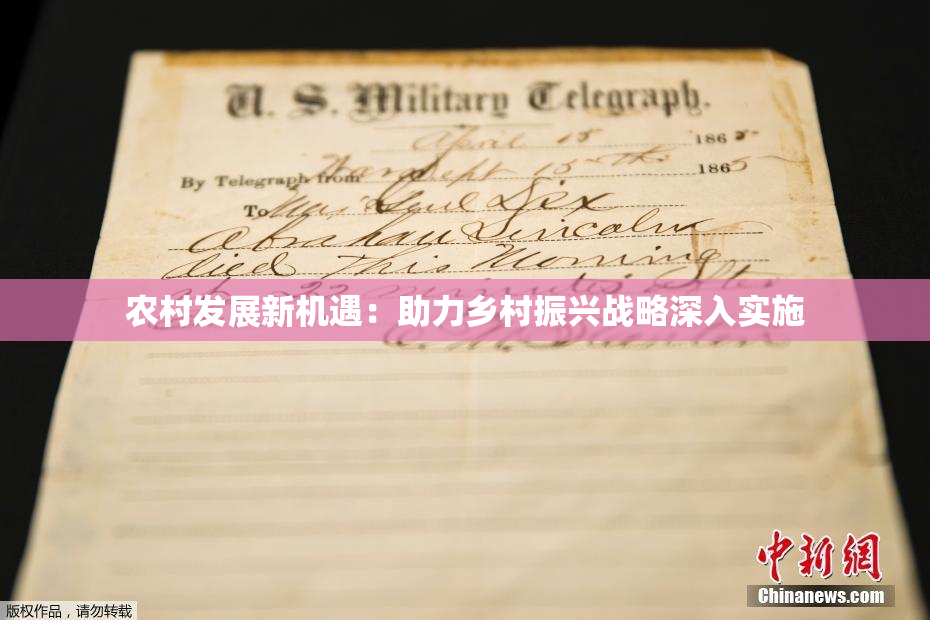 U. S. Military Telegraph.
April 15 1865
By Telegraph from War Dept 15th 1865
To Maj Genl Dix
Abraham Lincoln
died This Morning
at 22 minutes after
农村发展新机遇：助力乡村振兴战略深入实施
中新网
Chinanews.com
版权作品，请勿转载